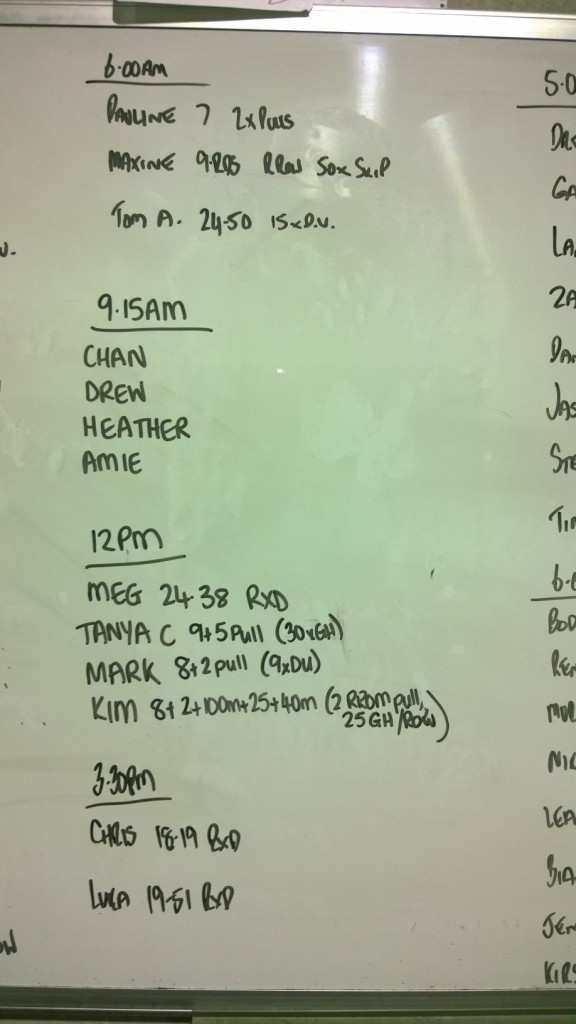 6.00AM
PAULINE 7 2xPulls
MAXINE 9.RDS R Row 50x SKIP
Tom A. 24.50 15xD.U.
9.15AM
CHAN
DREW
HEATHER
AMIE
12PM
MEG 24.38 RXD
TANYA C 9+5 Pull (30xGH)
MARK 8+2 pull (9xDU)
KIM 8+2+100m+25+40m (2 RROM pull,
25 GH/ROW)
3.30PM
CHRIS 18.19 RXD
LUCA 19.51 RXD
5.0
GA
LA
ZA
DA
JAS
STE
TI
6.
BOD
REN
NIC
LEA
BIA
JEN
KIRS